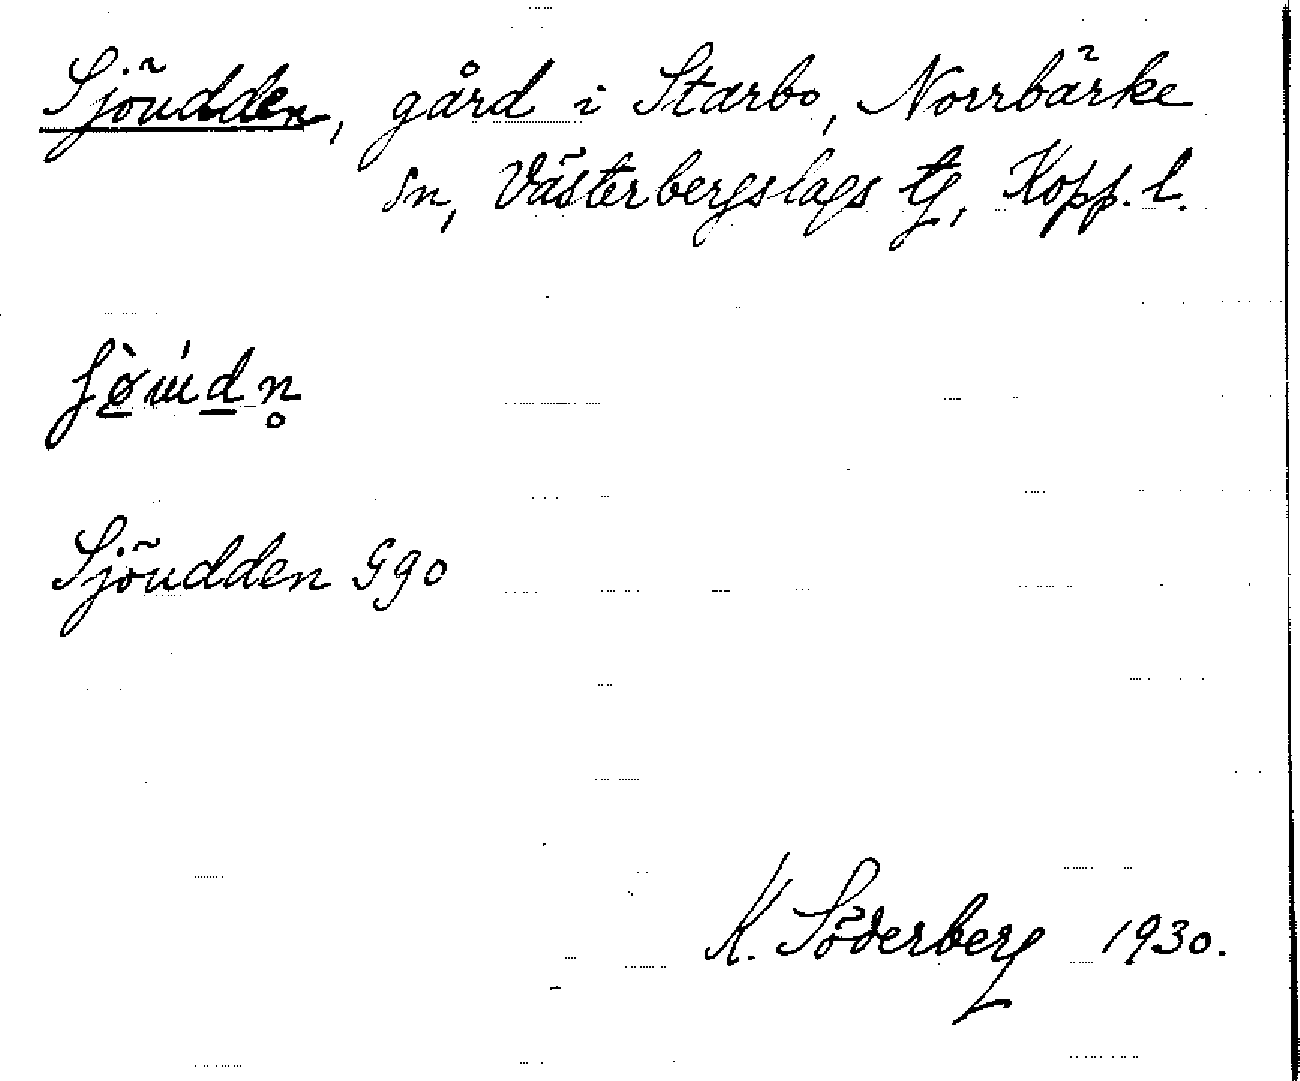 Sjöudden, gård i Starbo, Norrbärke
sn, Västerbergslags tg, Kopp. l.
Sjöudden Ggo
K. Söderberg 1930.